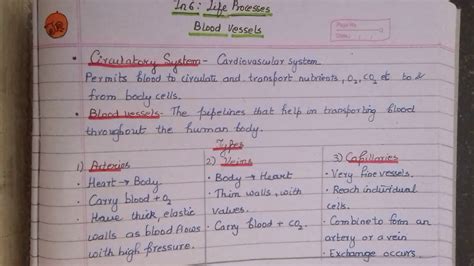 Ln 6: Life Processes
Blood Vessels
Page No.
Date
• Circulatory System - Cardiovascular system.
Permits blood to circulate and transport nutrients, O2, CO2 etc to &
from body cells.
• Blood vessels - The pepetines that help in transporting blood
throughout the human body.
Types
1) Arteries
• Heart → Body.
• Carry blood + O2
• Have thick, elastic
walls as blood flows
with high pressure.
2) Veins
• Body → Heart
• Thin walls, with
valves.
• Carry blood + CO2.
3) Capillaries
• Very fine vessels.
• Reach individual
cells.
• Combine to form an
artery or a vein
• Exchange occurs.